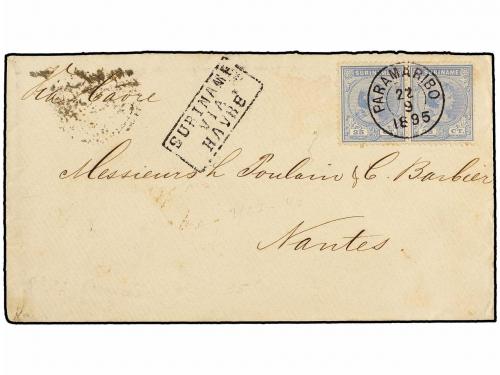 Via Havre
SURINAME
VIA
HAVRE
SURINAME SURINAME
PARAMARIBO
22
9
1895
25 CT.
Messieurs L. Poulain & C. Barbier
Nantes.